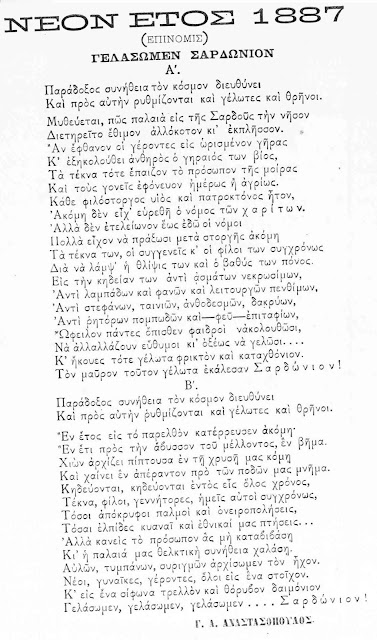 ΝΕΟΝ ΕΤΟΣ 1887
(ΕΠΙΝΟΜΙΣ)
ΓΕΛΑΣΩΜΕΝ ΣΑΡΔΩΝΙΟΝ
Α'.
Παράδοξος συνήθεια τὸν κόσμον διευθύνει
Καὶ πρὸς αὐτὴν ῥυθμίζονται καὶ γέλωτες καὶ θρῆνοι.
Μυθεύεται, πῶς παλαιὰ εἰς τῆς Σαρδοῦς τὴν νῆσον
Διετηρεῖτο ἔθιμον ἀλλόκοτον κι' ἐκπλῆσσον.
Ἂν ἔφθανον οἱ γέροντες εἰς ὡρισμένον γῆρας
Κ' ἐξηκολούθει ἀνθηρὸς ὁ γηραιός των βίος,
Τὰ τέκνα τότε ἔπαιζον τὸ πρόσωπον τῆς μοίρας
Καὶ τοὺς γονεῖς ἐφόνευον ἡμέρως ἢ ἀγρίως.
Κάθε φιλόστοργος υἱὸς καὶ πατροκτόνος ἦτον,
Ἀκόμη δὲν εἶχ' εὑρεθῆ ὁ νόμος τῶν χαρίτων.
Ἀλλὰ δὲν ἐτελείωνον ἕως ἐδῶ οἱ νόμοι
Πολλὰ εἶχον νὰ πράξωσι μετὰ στοργῆς ἀκόμη
Τὰ τέκνα των, οἱ συγγενεῖς κ' οἱ φίλοι των συγχρόνως
Διὰ νὰ λάμψ' ἡ θλίψις των καὶ ὁ βαθύς των πόνος.
Εἰς τὴν κηδείαν των ἀντὶ ᾀσμάτων νεκρωσίμων,
Ἀντὶ λαμπάδων καὶ φανῶν καὶ λειτουργῶν πενθίμων,
Ἀντὶ στεφάνων, ταινιῶν, ἀνθοδεσμῶν, δακρύων,
Ἀντὶ ῥητόρων πομπωδῶν καὶ—φεῦ—ἐπιταφίων,
Ὤφειλον πάντες ὄπισθεν φαιδροὶ ν' ἀκολουθῶσι,
Νὰ ἀλλαλλάζουν εὔθυμοι κι' ὀξέως νὰ γελῶσι....
Κ' ἤκουες τότε γέλωτα φρικτὸν καὶ καταχθόνιον.
Τὸν μαῦρον τοῦτον γέλωτα ἐκάλεσαν Σαρδώνιον!
Β'.
Παράδοξος συνήθεια τὸν κόσμον διευθύνει
Καὶ πρὸς αὐτὴν ῥυθμίζονται καὶ γέλωτες καὶ θρῆνοι.
Ἓν ἔτος εἰς τὸ παρελθὸν κατέρρευσεν ἀκόμη·
Ἓν ἔτι πρὸς τὴν ἄβυσσον τοῦ μέλλοντος, ἓν βῆμα.
Χιὼν ἀρχίζει πίπτουσα ἐν τῇ χρυσῇ μας κόμη
Καὶ χαίνει ἓν ἀπέραντον πρὸ τῶν ποδῶν μας μνῆμα.
Κηδεύονται, κηδεύονται ἐντὸς εἷς ὅλος χρόνος,
Τέκνα, φίλοι, γεννήτορες, ἡμεῖς αὐτοὶ συγχρόνως,
Τόσοι ἀπόκρυφοι παλμοὶ καὶ ὀνειροπολήσεις,
Τόσαι ἐλπίδες κυαναῖ καὶ ἐθνικαί μας πτήσεις...
Ἀλλὰ κανεὶς τὸ πρόσωπον ἂς μὴ καταβιβάσῃ
Κι' ἡ παλαιά μας θελκτικὴ συνήθεια χαλάσῃ.
Αὐλῶν, τυμπάνων, συριγμῶν ἀρχίσωμεν τὸν ἦχον.
Νέοι, γυναῖκες, γέροντες, ὅλοι εἰς ἕνα στοῖχον.
Κ' εἰς ἕνα σίφωνα τρελλὸν καὶ θόρυβον δαιμόνιον
Γελάσωμεν, γελάσωμεν, γελάσωμεν.... Σαρδώνιον!
Γ. Α. ΑΝΑΣΤΑΣΟΠΟΥΛΟΣ.